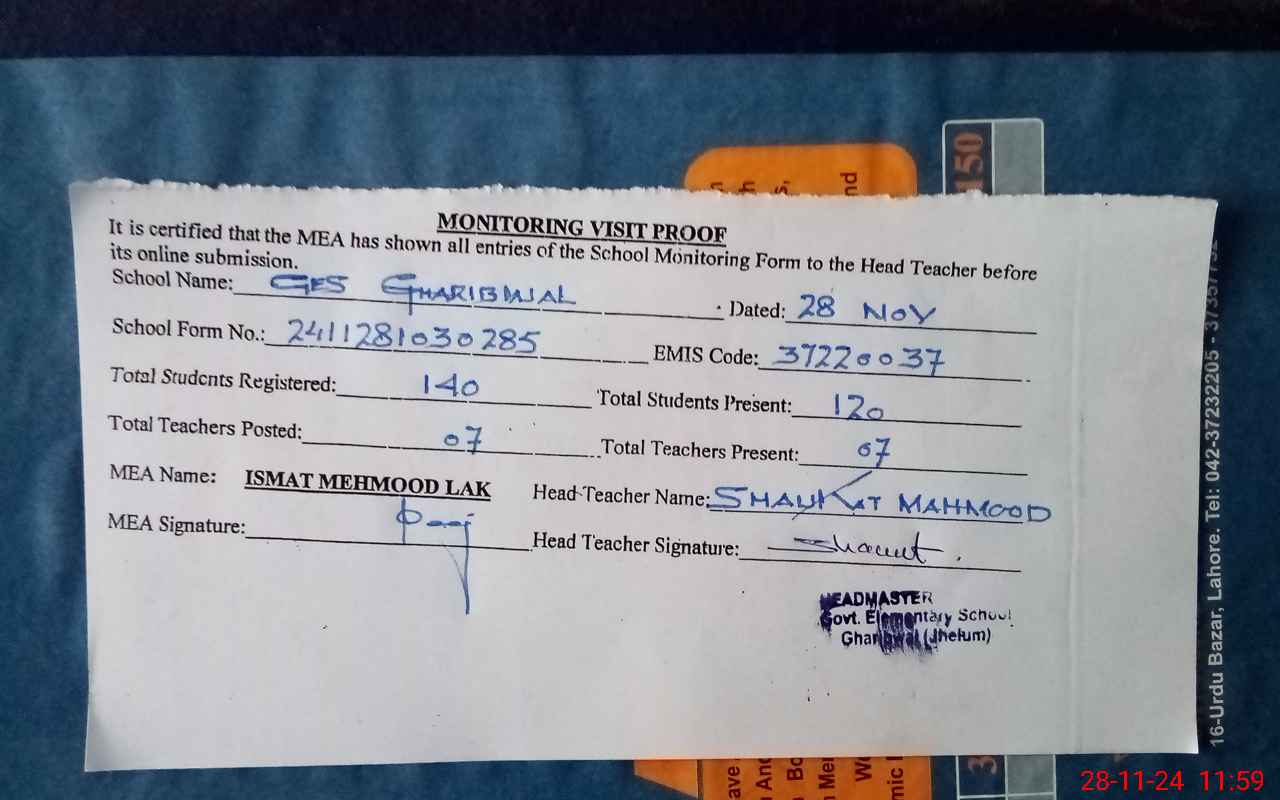 MONITORING VISIT PROOF
It is certified that the MEA has shown all entries of the School Monitoring Form to the Head Teacher before
its online submission.
School Name: GES GHARIBWAL Dated: 28 NOV
School Form No.: 2411281030285 EMIS Code: 37220037
Total Students Registered: 140 Total Students Present: 120
Total Teachers Posted: 07 Total Teachers Present: 07
MEA Name: ISMAT MEHMOOD LAK Head Teacher Name: SHAUKAT MAHMOOD
MEA Signature: Head Teacher Signature:
HEADMASTER
Govt. Elementary School
Gharibwal (Jhelum)
16-Urdu Bazar, Lahore. Tel: 042-37232205 -
150
nd
ave
Wo
28-11-24 11:59